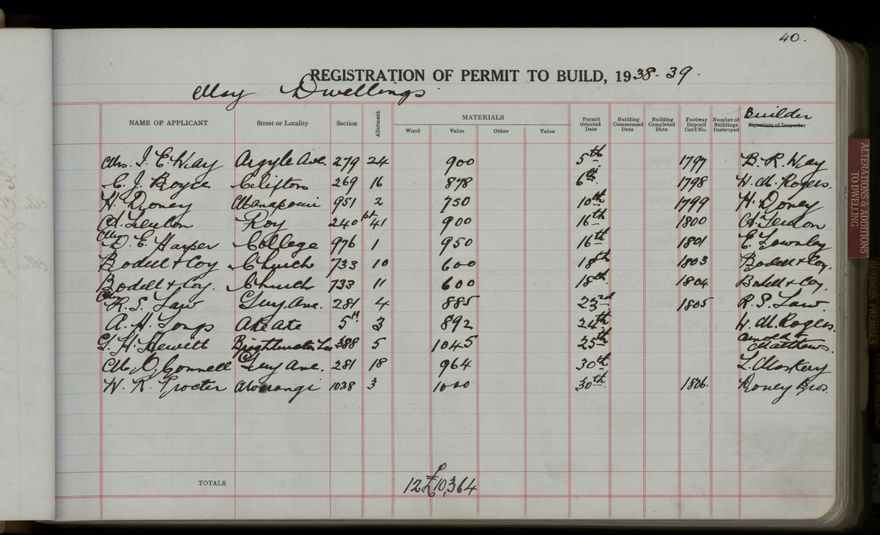 40.
REGISTRATION OF PERMIT TO BUILD, 1938-39.
May Dwellings
NAME OF APPLICANT Street or Locality Section Allotment MATERIALS Wood Value Other Value Permit Granted Date Building Commenced Date Building Completed Date Footway Deposit Card No. Number of Buildings Destroyed Builder Signature of Inspector
Mrs. I. E. Way Argyle Ave. 279 24 900 5th 1797 B. R. Way
C. J. Boyce Clifton 269 16 878 6th 1798 W. M. Rogers
H. Doney Manapouri 951 2 750 10th 1799 H. Doney
A. Roy 240 pt 41 900 16th 1800 A.
Mrs D. E. Harper College 976 1 950 16th 1801 E. Townley
Bodell & Coy Church 733 10 600 18th 1803 Bodell & Coy.
Bodell & Coy. Church 733 11 600 18th 1804 Bodell & Coy.
R. S. Law Guy Ave. 281 4 885 23rd 1805 R. S. Law
A. H. Tongs Akeate 5 3 892 24th W. M. Rogers
G. H. Hewett 388 5 1045 25th Matthews.
M. O'Connell Guy Ave. 281 18 964 30th L. Maskery
W. R. Procter 1038 3 1000 30th 1806. Doney Bros.
TOTALS 12 £10,364
ALTERATIONS & ADDITIONS TO DWELLING
BUSINESS PREMISES